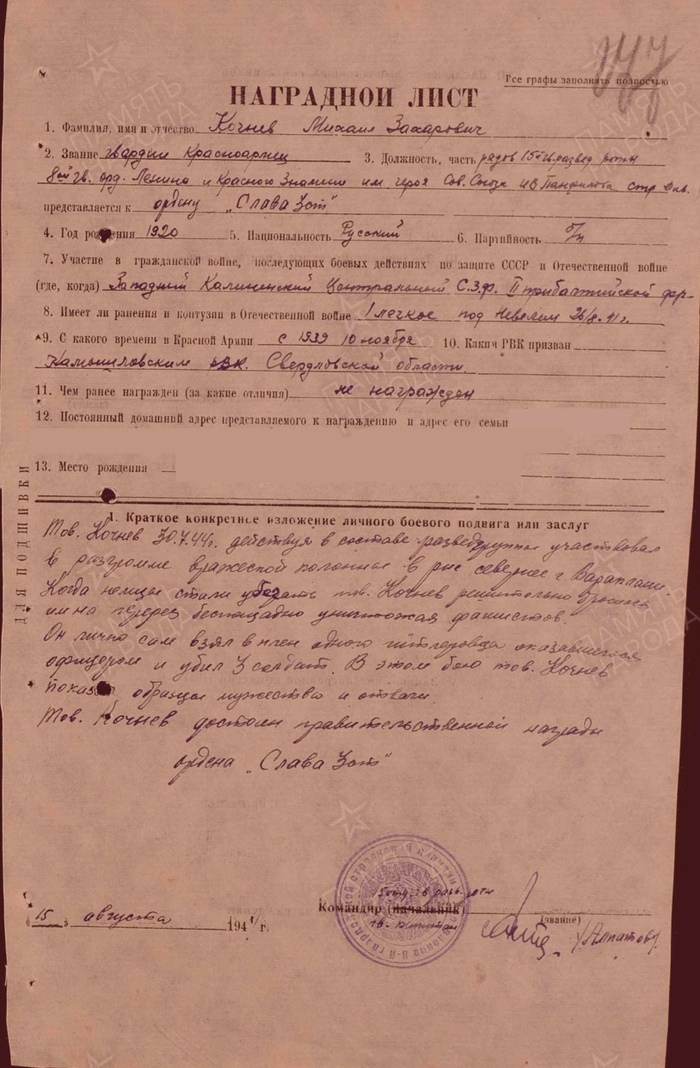 147
Все графы заполнять полностью
НАГРАДНОЙ ЛИСТ
1. Фамилия, имя и отчество Кочнев Михаил Захарович
2. Звание гвардии Красноармеец 3. Должность, часть рядов 15 гв. развед роты
8ой гв. орд. Ленина и Красного Знамени им героя Сов. Союза ИВ Панфилова стр див.
представляется к ордену „Слава 3 ст"
4. Год рождения 1920 5. Национальность Русский 6. Партийность б/п
7. Участие в гражданской войне, последующих боевых действиях по защите СССР и Отечественной войне
(где, когда) Западный Калининский Центральный С.З.ф. II прибалтийской
8. Имеет ли ранения и контузии в Отечественной войне 1 легкое под Невелем
9. С какого времени в Красной Армии с 1939 10 ноября 10. Каким РВК призван
Камышловским РВК. Свердловской области
11. Чем ранее награжден (за какие отличия) не награжден
12. Постоянный домашний адрес представляемого к награждению и адрес его семьи
13. Место рождения
ДЛЯ ПОДШИВКИ
1. Краткое конкретное изложение личного боевого подвига или заслуг
Тов. Кочнев 30.7.44г. действуя в составе разведгруппы участвовал
в разгроме вражеской колонны в рне севернее г Вараклани.
Когда немцы стали убегать тов. Кочнев решительно бросился
им на перерез беспощадно уничтожая фашистов.
Он лично сам взял в плен одного гитлеровца оказавшегося
офицером и убил 3 солдат. В этом бою тов. Кочнев
показал образцы мужества и отваги.
Тов. Кочнев достоин правительственной награды
ордена „Слава 3 ст"
15 августа 1944 г.
Командир (начальник)
(звание)